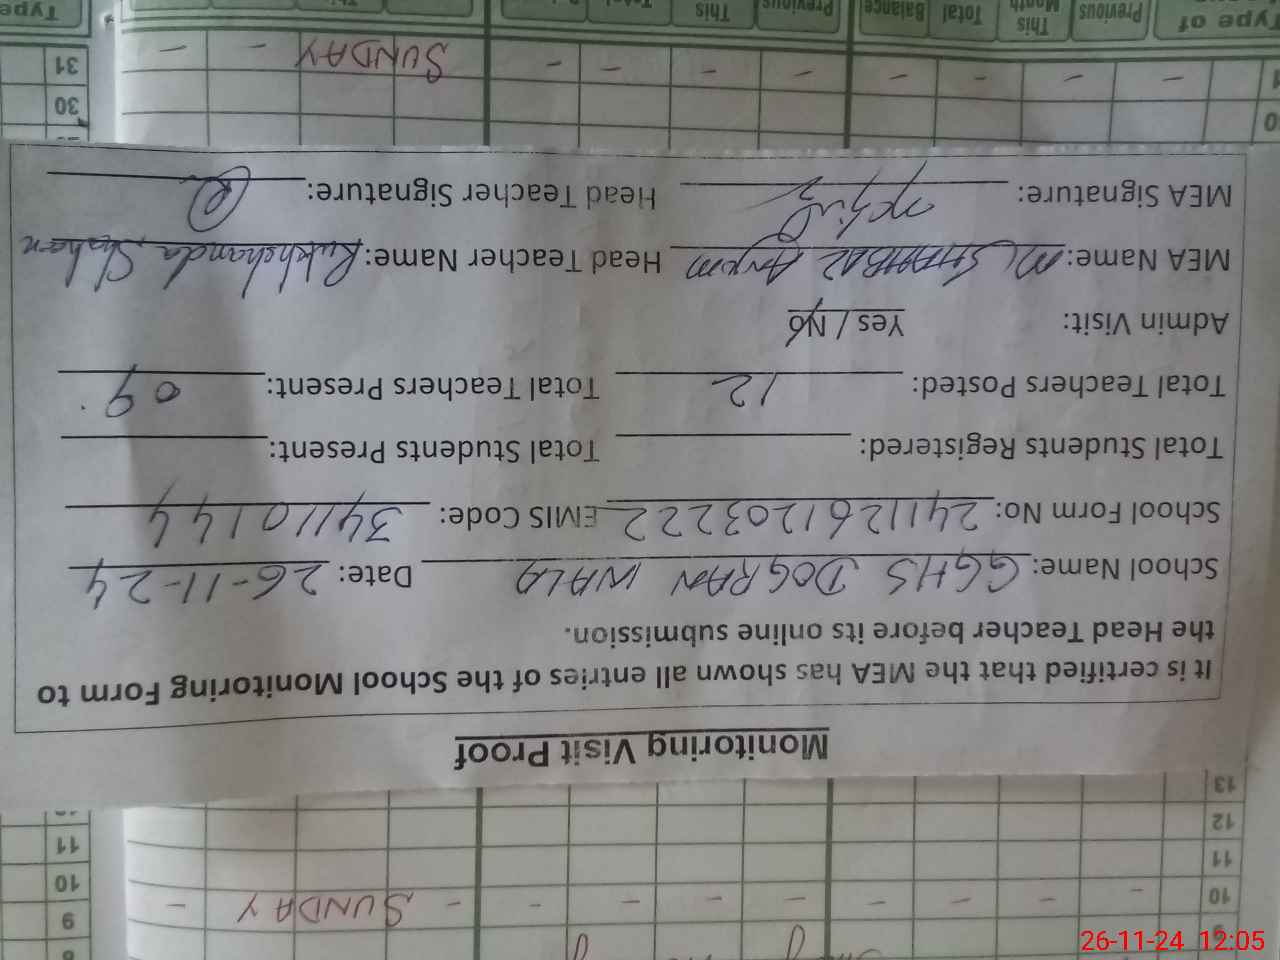 Monitoring Visit Proof
It is certified that the MEA has shown all entries of the School Monitoring Form to
the Head Teacher before its online submission.
School Name: GGHS DOGRAN WALA Date: 26-11-24
School Form No: 2411261203222 EMIS Code: 34110144
Total Students Registered: Total Students Present:
Total Teachers Posted: 12 Total Teachers Present: 09
Admin Visit: Yes / No
MEA Name: M SHAHBAZ Anjum Head Teacher Name: Rukhshanda Shaheen
MEA Signature: Head Teacher Signature:
9
10 - - - - - - - - SUNDAY - 9
11 10
12 11
13
30
31 - - - - - - - - SUNDAY - - 31
Type of Previous This Month Total Balance Previous This Total Type
26-11-24 12:05